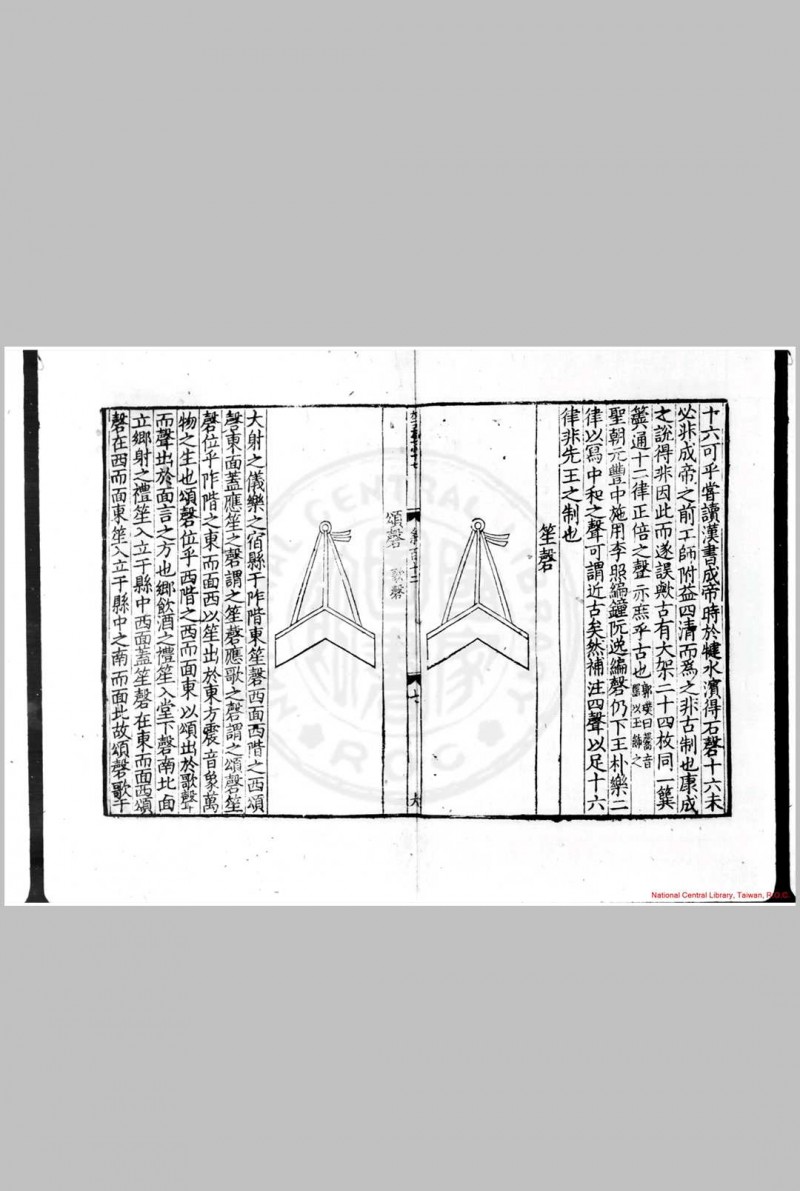 十六可乎嘗讀漢書成帝時於犍水濱得石磬十六未
必非成帝之前工師附益四清而爲之非古制也康成
之說得非因此而遂誤歟古有大架二十四枚同一簨
簴通十二律正倍之聲亦庶乎古也郭璞曰䃢音
嚻以玉飾之
聖朝元豐中施用李照編鐘阮逸編磬仍下王朴樂二
律以寫中和之聲可謂近古矣然補注四聲以足十六
律非先王之制也
笙磬
頌磬 歌磬
大射之儀樂之宿縣于阼階東笙磬西面西階之西頌
磬東面蓋應笙之磬謂之笙磬應歌之磬謂之頌磬笙
磬位乎阼階之東而面西以笙出於東方震音象萬
物之生也頌磬位乎西階之西而面東以頌出於歌聲
而聲出於面言之方也鄉飲酒之禮笙入堂下磬南北面
立鄉射之禮笙入立于縣中西面蓋笙磬在東而面西頌
磬在西而面東笙入立于縣中之南而面北故頌磬歌于
National Central Library, Taiwan, R.O.C